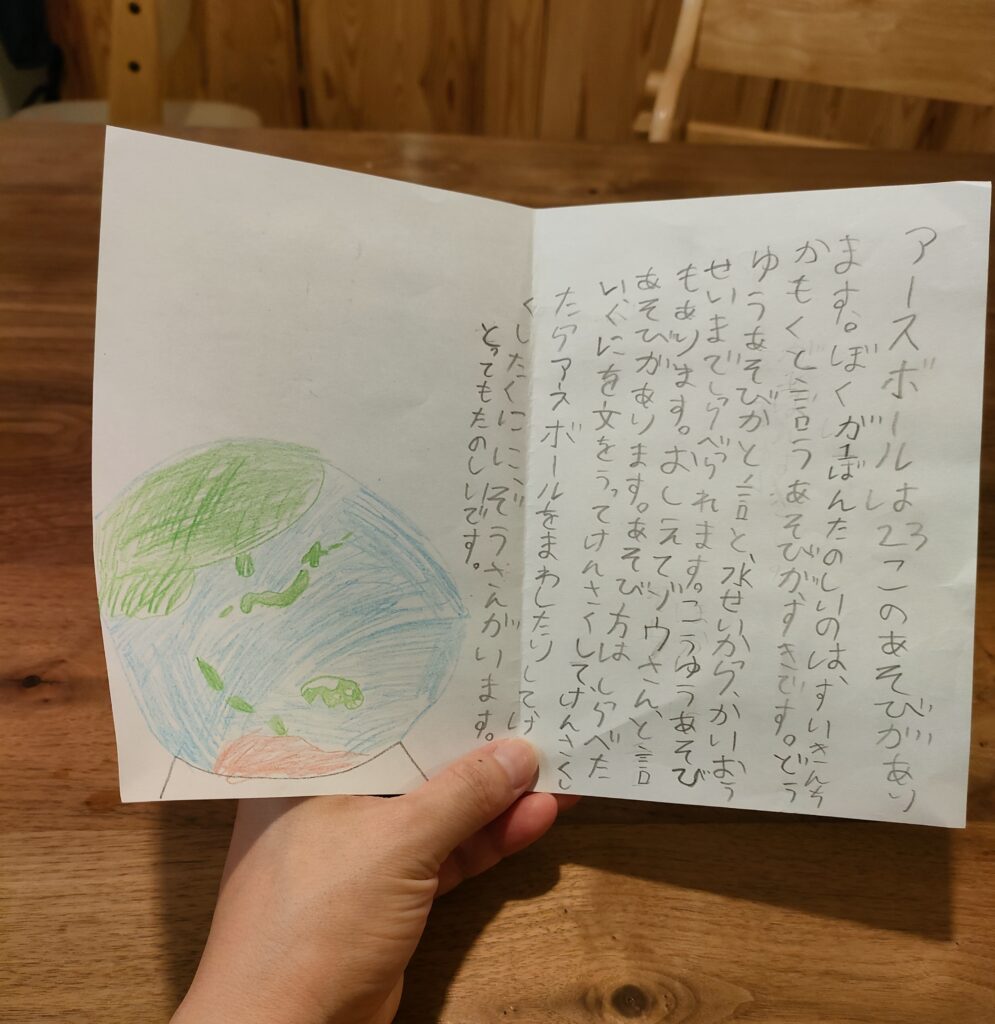 アースボールは23このあそびがあり
ます。ぼくが1ばんたのしいのは、すいきんち
かもくと言うあそびが、すきです。どう
ゆうあそびかと言と、水せいから、かいおう
せいまでしらべられます。こうゆうあそび
もあります。おしえてゾウさん、と言
あそびがあります。あそび方は、しらべた
いくにを文をうってけんさくしてけんさくし
たらアースボールをまわしたりしてけ
くしたくににぞうさんがいます。
とってもたのしいです。